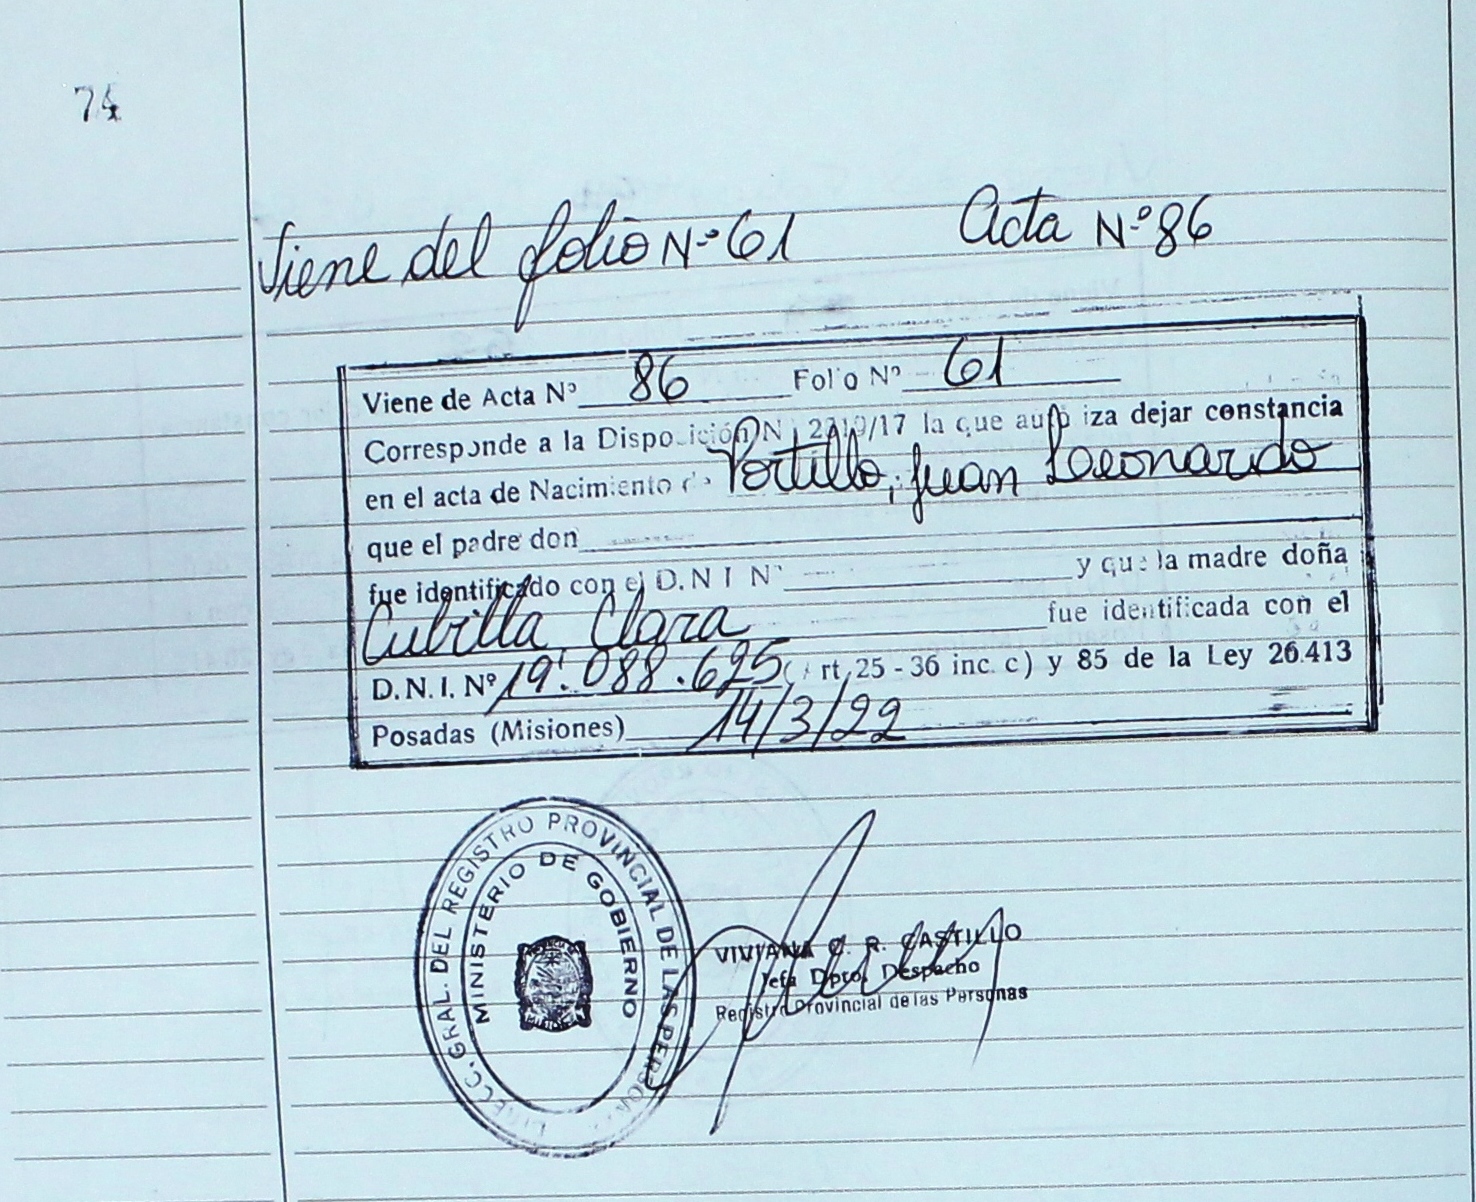 74
Viene del folio N° 61 Acta N° 86
Viene de Acta N° 86 Folio N° 61
Corresponde a la Disposición N 2210/17 la que autoriza dejar constancia
en el acta de Nacimiento de Portillo, Juan Leonardo
que el padre don
fue identificado con el D.N I N° y que la madre doña
Cubilla Clara fue identificada con el
D.N.I. N° 19.088.625 (Art. 25 - 36 inc. c) y 85 de la Ley 26.413
Posadas (Misiones) 14/3/22
DIRECC. GRAL. DEL REGISTRO PROVINCIAL DE LAS PERSONAS
MINISTERIO DE GOBIERNO
VIVIANA C. R. CASTILLO
Jefa Dpto. Despacho
Registro Provincial de las Personas